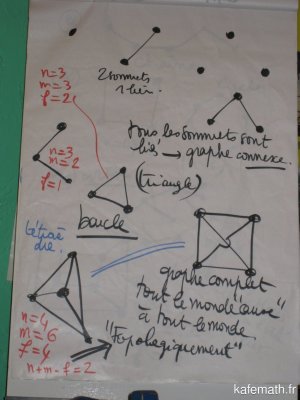 2 sommets
1 lien.
n=3
m=3
f=2
tous les sommets sont
liés → graphe connexe.
n=3
m=2
f=1
(triangle)
boucle
tétraè
dre.
graphe complet
tout le monde "cause"
à tout le monde
"Topologiquement"
n=4
m=6
f=4
n+m-f=2
kafemath.fr